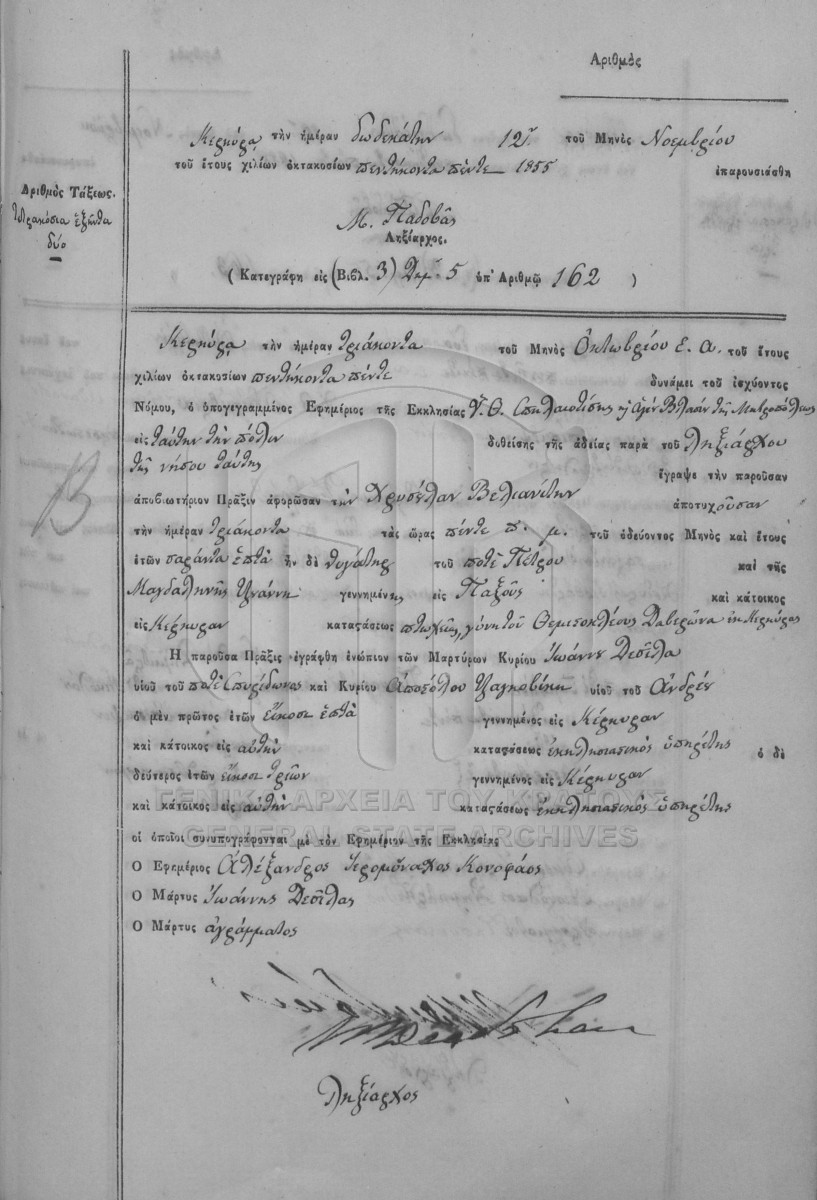 Αριθμὸς
Κερκύρᾳ τὴν ἡμέραν δωδεκάτην 12ῃ τοῦ Μηνὸς Νοεμβρίου
τοῦ ἔτους χιλίων ὀκτακοσίων πεντήκοντα πέντε 1855 ἐπαρουσιάσθη
Ἀριθμὸς Τάξεως.
Τετρακόσια ἑξῆντα
δύο
Μ. Παδοβᾶς
Ληξίαρχος.
( Κατεγράφη εἰς (Βιβλ. 3) 5 ὑπ' Ἀριθμῷ 162 )
Κερκύρᾳ τὴν ἡμέραν τριάκοντα τοῦ Μηνὸς Ὀκτωβρίου ἐ. ἀ. τοῦ ἔτους
χιλίων ὀκτακοσίων πεντήκοντα πέντε δυνάμει τοῦ ἰσχύοντος
Νόμου, ὁ ὑπογεγραμμένος Ἐφημέριος τῆς Ἐκκλησίας Ὑ. Θ. Σπηλαιοτίσης ἢ Ἁγίου Βλασίου τῆς Μητροπόλεως
εἰς ταύτην τὴν πόλιν δοθείσης τῆς ἀδείας παρὰ τοῦ Ληξιάρχου
τῆς νήσου ταύτης ἔγραψε τὴν παροῦσαν
ἀποβιωτήριον Πρᾶξιν ἀφορῶσαν τὴν Χρυσέλαν Βελιανίτην ἀποτυχοῦσαν
τὴν ἡμέραν τριάκοντα τὰς ὥρας πέντε π. μ. τοῦ ὁδεύοντος Μηνὸς καὶ ἔτους
ἐτῶν σαράντα ἑπτὰ ἦν δὲ θυγάτηρ τοῦ ποτὲ Πέτρου καὶ τῆς
Μαγδαληνῆς γεννημένης εἰς Παξοὺς καὶ κάτοικος
εἰς Κέρκυραν καταστάσεως πτωχῆς, γύνη τοῦ Θεμιστοκλέους Δαβερώνα ἐκ Κερκύρας
Ἡ παροῦσα Πρᾶξις ἐγράφθη ἐνώπιον τῶν Μαρτύρων Κυρίου Ἰωάννου Δεσύλα
υἱοῦ τοῦ ποτὲ Σπυρίδωνος καὶ Κυρίου Ἀποστόλου υἱοῦ τοῦ Ἀνδρέα
ὁ μὲν πρῶτος ἐτῶν εἴκοσι ἑπτὰ γεννημένος εἰς Κέρκυραν
καὶ κάτοικος εἰς αὐτὴν καταστάσεως ἐκκλησιαστικὸς ὑπηρέτης ὁ δὲ
δεύτερος ἐτῶν εἴκοσι τριῶν γεννημένος εἰς Κέρκυραν
καὶ κάτοικος εἰς αὐτὴν καταστάσεως ἐκκλησιαστικὸς ὑπηρέτης
ΓΕΝΙΚΑ ΑΡΧΕΙΑ ΤΟΥ ΚΡΑΤΟΥΣ
GENERAL STATE ARCHIVES
οἱ ὁποῖοι συνυπογράφονται μὲ τὸν Ἐφημέριον τῆς Ἐκκλησίας
Ὁ Ἐφημέριος Ἀλέξανδρος Ἱερομόναχος Κονοφάος
Ὁ Μάρτυς Ἰωάννης Δεσύλας
Ὁ Μάρτυς ἀγράμματος
Ληξίαρχος